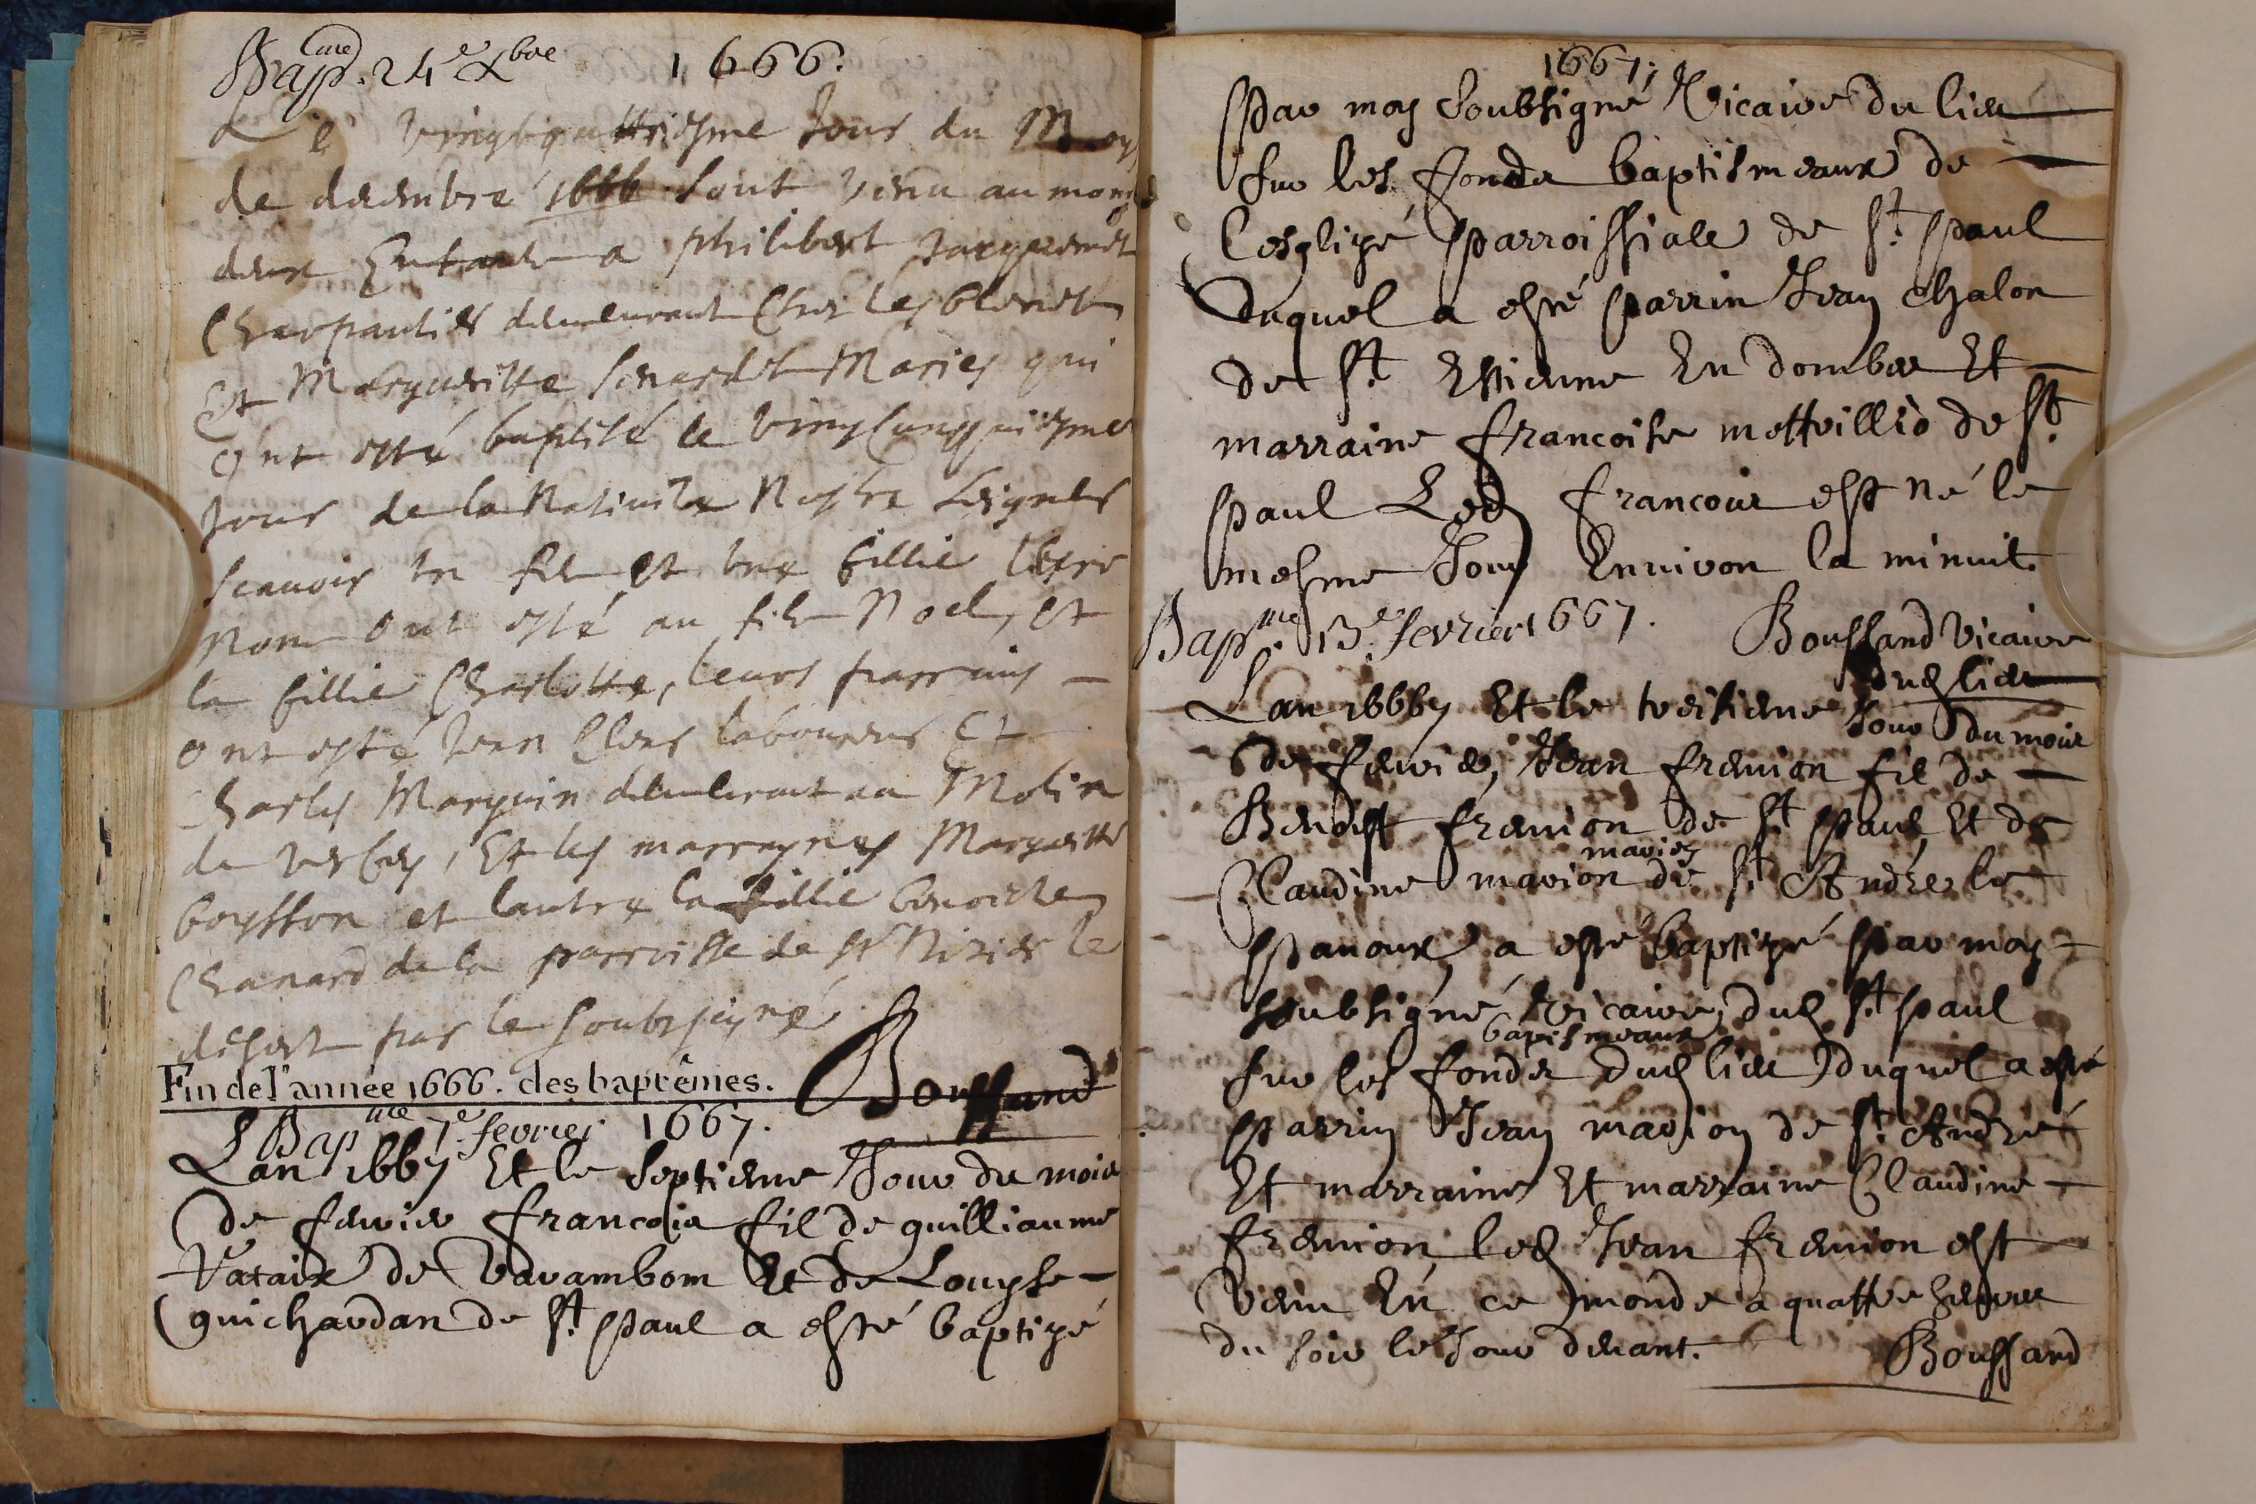 Bap. 24e Xbre 1666.
Le vingtquattriesme Jour du Moys
de decembre 1666 sont venu au monde
deux Enfants a philibert Jacquemet
Charpantier demeurant Chez les
Et Margueritte Mariés qui
ont esté baptisé le vingtcinqquiesme
Jour de la Nativite Nostre Seigneur
scavoir un fils et une fillie leurs
nom ont esté au fils Noel, et
la fillie Charlotte, leurs parrains
ont esté Jean Clerc laboureur Et
Charles Marguin demeurant au Molin
de, Et les marreynes Marguerite
boysson et lautre la fillie benoiste
Chanard de la parroisse de St Nizier le
desert par le soubsigné
Boussand
Fin de l'année 1666. des baptêmes.
Bapme 7e fevrier 1667.
Lan 1667 Et le septieme Jour du mois
de fevrier francois fil de guilliaume
Vataix de Varambom Et de Louyse
guichardan de St paul a esté baptizé
1667;
Par moy soubsigné Vicaire du lieu
sur les fonds baptismeaux de
lesglize parroissiale de St paul
duquel a esté parrin Jean chalon
de St Estienne En dombes Et
marraine francoise de St
paul Led francois est né le
mesme Jour Environ la minuit.
Boussand vicaire
dud lieu
Bapme 13e fevrier 1667.
Lan 16667 Et le treisieme Jour du mois
de fevrier, Jean fremion fil de
Benoist fremion de St paul Et de
mariés
Claudine marion de St André le
panoux, a esté baptizé par moy
soubsigné vicaire, dud St paul
baptismeaux
sur les fonds dud lieu duquel a esté
parrin Jean marion de St André
Et marraine Et marraine Claudine
fremion, led Jean fremion est
venu En ce monde a quattre heures
du soir le Jour devant. Boussand